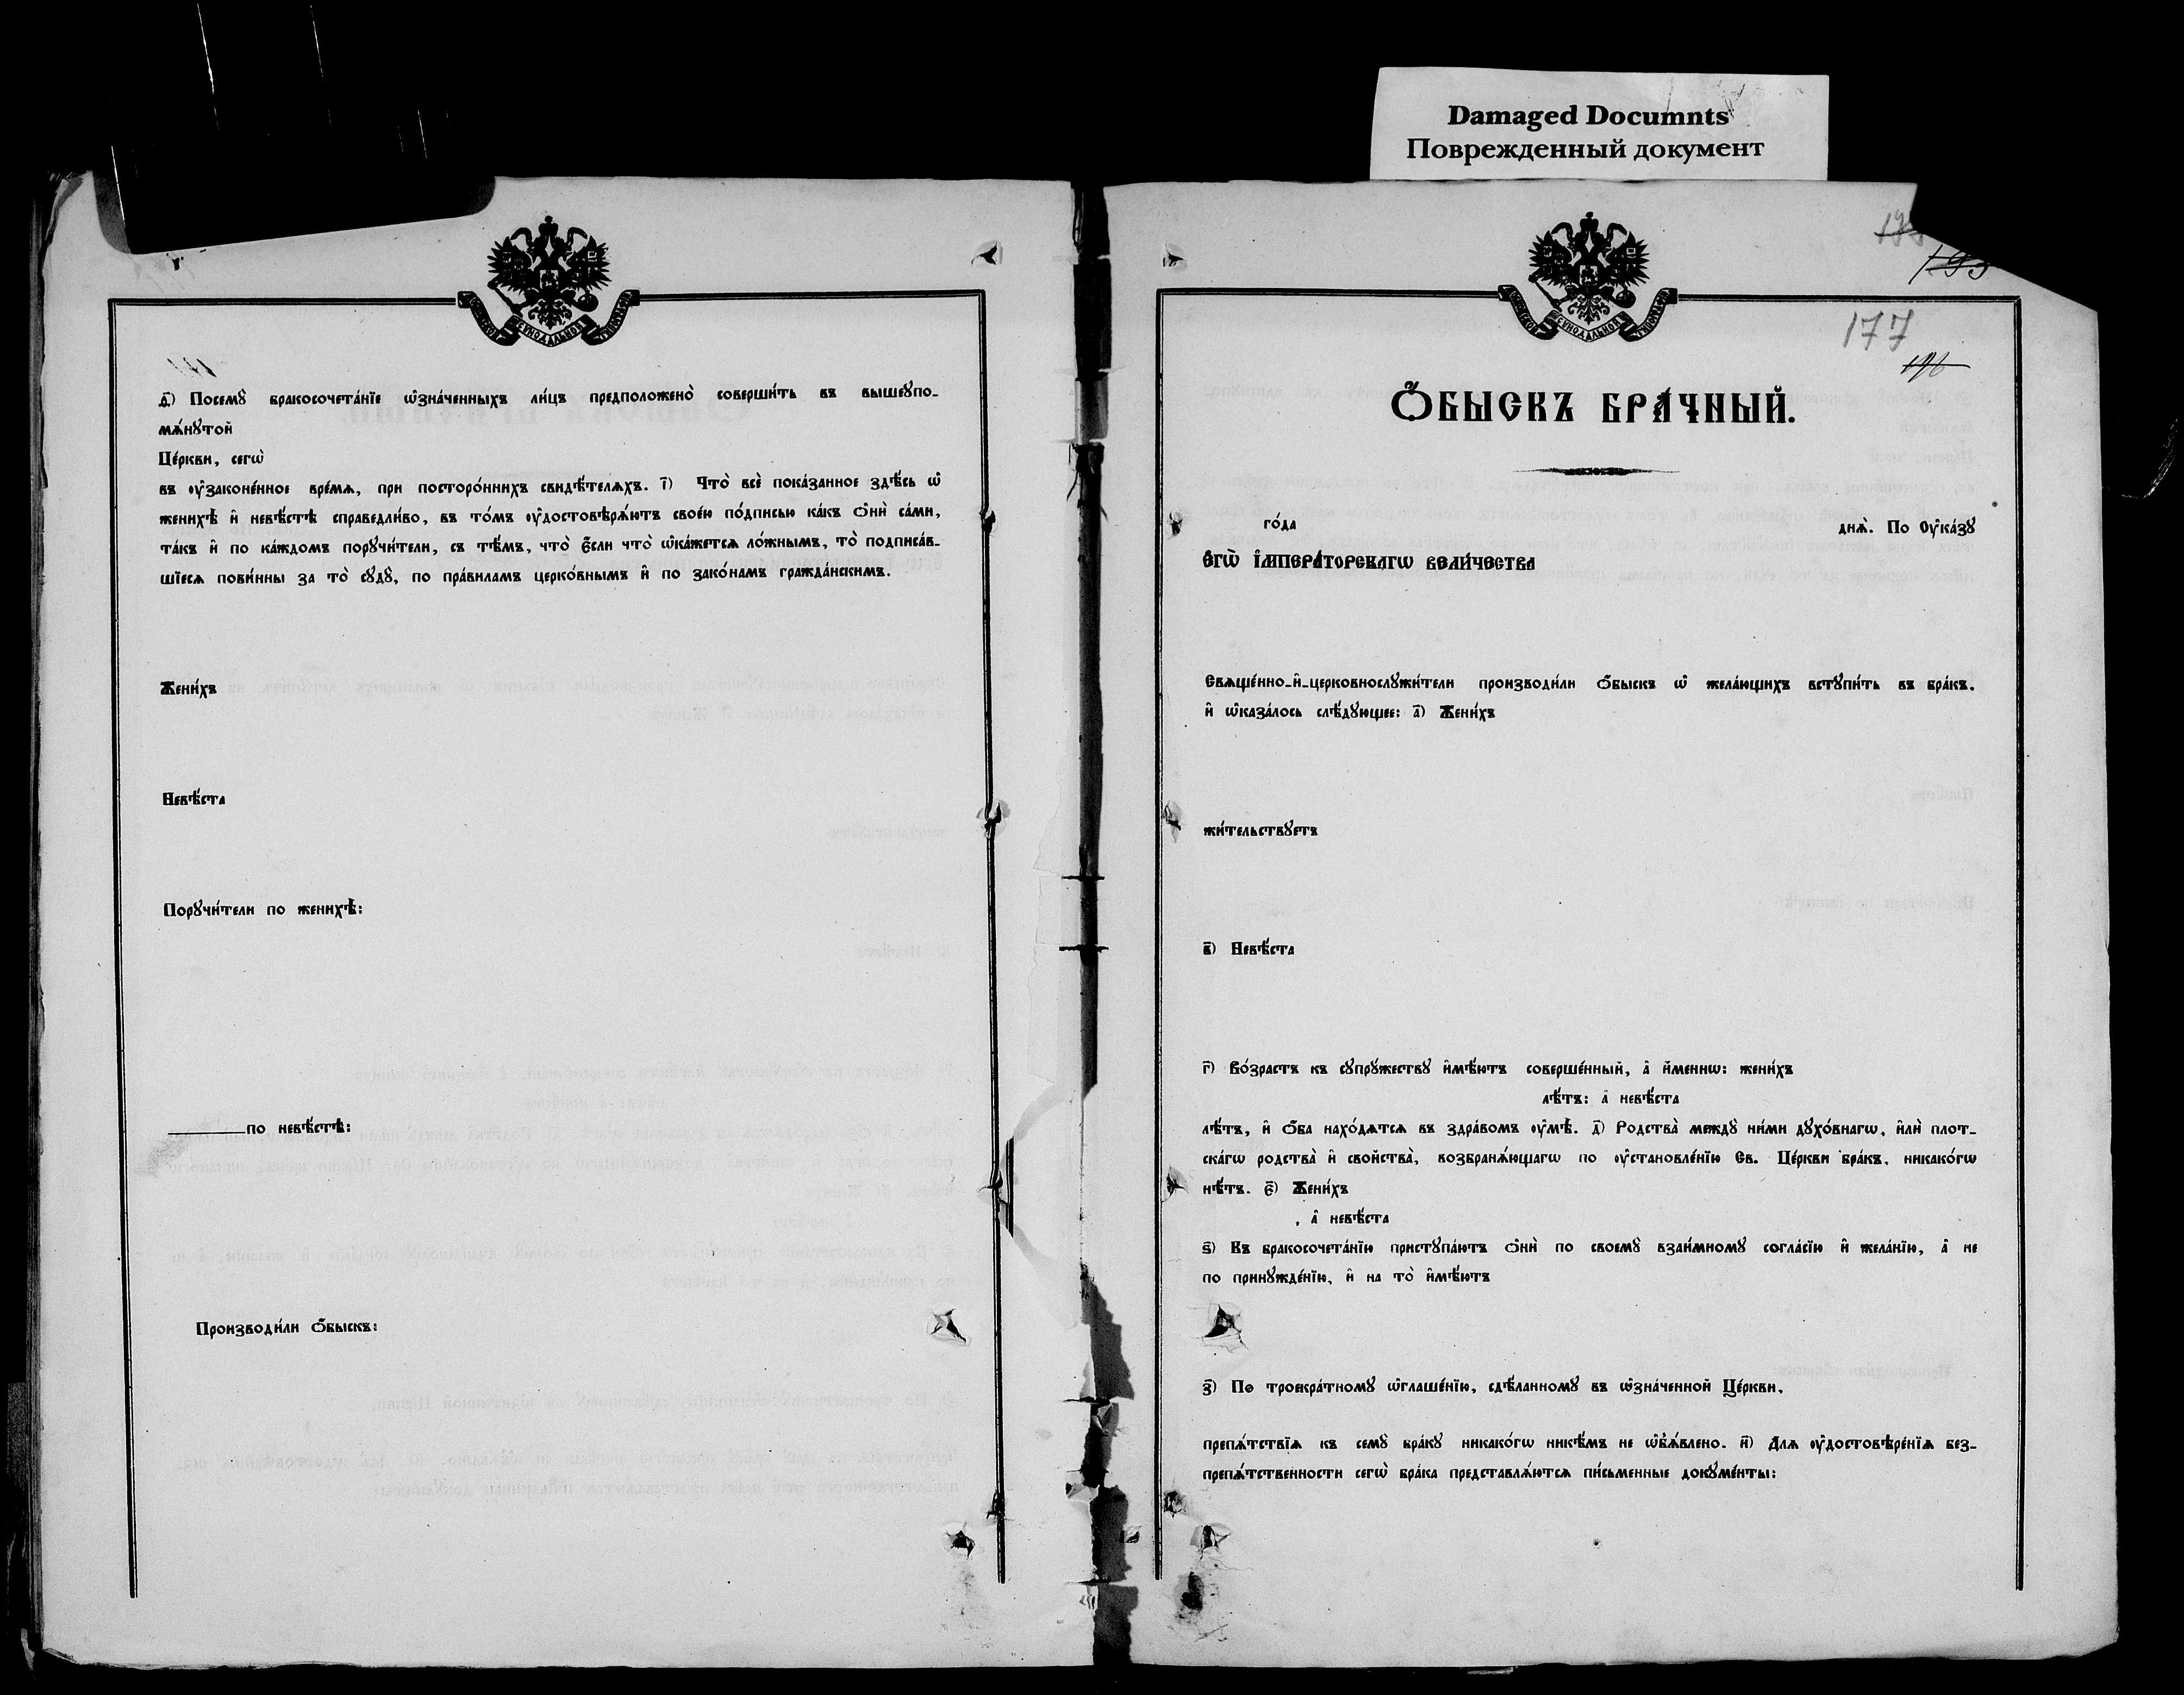 Damaged Documnts
Поврежденный документ
МОСКОВСКОЙ СѴНОДАЛЬНОЙ ТИПОГРАФІИ
д҃) Посемꙋ̀ бракосочета́нїе ѡ҆зна́ченныхъ ли́цъ предположено̀ соверши́ть въ вышеꙋпо-
мѧ́нꙋтой
Це́ркви, сегѡ̀
въ ᲂу҆законе́нное вре́мѧ, при посторо́ннихъ свидѣ́телѧхъ. і҃) Что̀ всѐ пока́занное здѣ́сь ѡ҆
женихѣ̀ и҆ невѣ́стѣ справедли́во, въ то́мъ ᲂу҆достовѣрѧ́ютъ свое́ю по́дписью ка́къ ѻ҆нѝ са́ми,
та́къ и҆ по ка́ждомъ порꙋчи́тели, съ тѣ́мъ, что̀ є҆́сли что̀ ѡ҆ка́жетсѧ ло́жнымъ, то̀ подписа́в-
шїесѧ пови́нны за то̀ сꙋдꙋ̀, по пра́виламъ церко́внымъ и҆ по зако́намъ гражда́нскимъ.
Жени́хъ
Невѣ́ста
Порꙋчи́тели по женихѣ̀:
по невѣ́стѣ:
Производи́ли ѻ҆́быскъ:
МОСКОВСКОЙ СѴНОДАЛЬНОЙ ТИПОГРАФІИ
193
177
196
Ѻ҆́БЫСКЪ БРА́ЧНЫЙ.
го́да днѧ̀. По Оу҆ка́зꙋ
Є҆ГѠ̀ І҆МПЕРА́ТОРСКАГѠ ВЕЛИ́ЧЕСТВА
Свѧще́нно-и҆-церковнослꙋжи́тели производи́ли ѻ҆́быскъ ѡ҆ жела́ющихъ встꙋпи́ть въ бра́къ.
и҆ ѡ҆каза́лось слѣ́дꙋющее: а҃) Жени́хъ
жи́тельствꙋетъ
в҃) Невѣ́ста
г҃) Во́зрастъ къ сꙋпрꙋ́жествꙋ и҆мѣ́ютъ соверше́нный, а҆ и҆́меннѡ: жени́хъ
лѣ́тъ: а҆ невѣ́ста
лѣ́тъ, и҆ ѻ҆́ба нахо́дѧтсѧ въ здра́вомъ ᲂу҆мѣ̀. д҃) Родства̀ междꙋ̀ ни́ми дꙋхо́внагѡ, и҆лѝ плот-
ска́гѡ родства̀ и҆ свойства̀, возбранѧ́ющагѡ по ᲂу҆становле́нїю Св. Це́ркви бра́къ, никако́гѡ
нѣ́тъ. є҃) Жени́хъ
, а҆ невѣ́ста
ѕ҃) Къ бракосочета́нїю пристꙋпа́ютъ ѻ҆нѝ по своемꙋ̀ взаи́мномꙋ согла́сїю и҆ жела́нїю, а҆ не
по принꙋжде́нїю, и҆ на то̀ и҆мѣ́ютъ
з҃) По троекра́тномꙋ ѡ҆глаше́нїю, сдѣ́ланномꙋ въ ѡ҆зна́ченной Це́ркви,
препѧ́тствїѧ къ семꙋ̀ бра́кꙋ никако́гѡ никѣ́мъ не ѡ҆б̾ѧ́влено. и҃) Длѧ ᲂу҆достовѣре́нїѧ без-
препѧ́тственности сегѡ̀ бра́ка представлѧ́ютсѧ пи́сьменные докꙋме́нты: